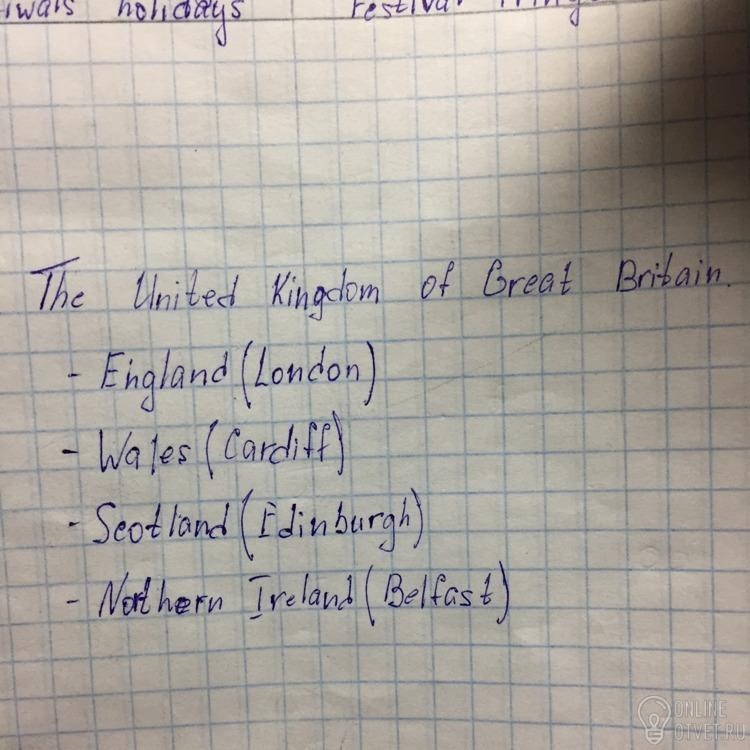 holidays
The United Kingdom of Great Britain.
- England (London)
- Wales (Cardiff)
- Scotland (Edinburgh)
- Northern Ireland (Belfast)
ONLINE
OTVET.RU